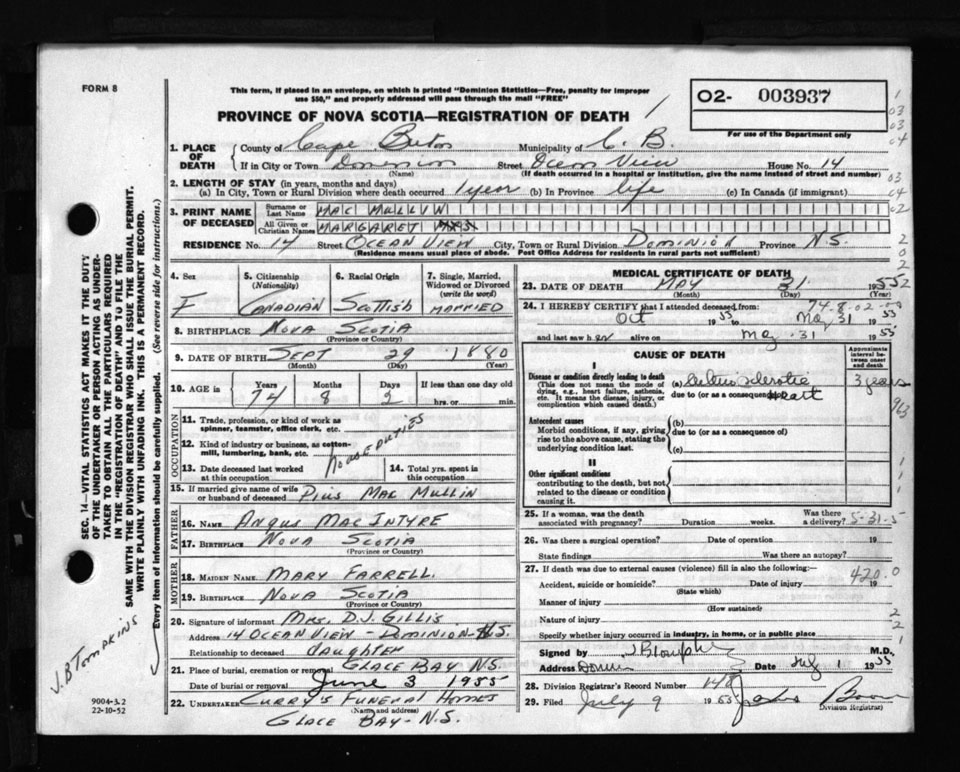 FORM 8
This form, if placed in an envelope, on which is printed "Dominion Statistics—Free, penalty for improper
use $50," and properly addressed will pass through the mail "FREE"
PROVINCE OF NOVA SCOTIA—REGISTRATION OF DEATH
O2- 003937
For use of the Department only
1. PLACE OF DEATH County of Cape Breton Municipality of C. B.
If in City or Town Dominion Street Ocean View House No. 14
(Name) (If death occurred in a hospital or institution, give the name instead of street and number)
2. LENGTH OF STAY (in years, months and days)
(a) In City, Town or Rural Division where death occurred 1 year (b) In Province life (c) In Canada (if immigrant)
3. PRINT NAME OF DECEASED
Surname or Last Name MAC MULLIN
All Given or Christian Names MARGARET
RESIDENCE No. 14 Street OCEAN VIEW City, Town or Rural Division DOMINION Province N.S.
(Residence means usual place of abode. Post Office Address for residents in rural parts not sufficient)
4. Sex F
5. Citizenship (Nationality) CANADIAN
6. Racial Origin Scottish
7. Single, Married, Widowed or Divorced (write the word) MARRIED
8. BIRTHPLACE NOVA SCOTIA
(Province or Country)
9. DATE OF BIRTH SEPT 29 1880
(Month) (Day) (Year)
10. AGE in Years 74 Months 8 Days 2 If less than one day old hrs. or min.
OCCUPATION
11. Trade, profession, or kind of work as spinner, teamster, office clerk, etc.
12. Kind of industry or business, as cotton-mill, lumbering, bank, etc.
HOUSE DUTIES
13. Date deceased last worked at this occupation
14. Total yrs. spent in this occupation
15. If married give name of wife or husband of deceased PIUS MAC MULLIN
FATHER
16. NAME ANGUS MAC INTYRE
17. BIRTHPLACE NOVA SCOTIA
(Province or Country)
MOTHER
18. MAIDEN NAME MARY FARRELL
19. BIRTHPLACE NOVA SCOTIA
(Province or Country)
20. Signature of informant MRS. D.J. GILLIS
Address 14 OCEAN VIEW - DOMINION N.S.
Relationship to deceased daughter
21. Place of burial, cremation or removal GLACE BAY N.S.
Date of burial or removal June 3 1955
22. UNDERTAKER CURRY'S FUNERAL HOMES
(Name and address)
GLACE BAY - N.S.
MEDICAL CERTIFICATE OF DEATH
23. DATE OF DEATH MAY 31 1955
(Month) (Day) (Year)
24. I HEREBY CERTIFY that I attended deceased from:
74-8-02
Oct 1955 to May 31 1955
and last saw her alive on May 31 1955
CAUSE OF DEATH
Approximate interval between onset and death
I
Disease or condition directly leading to death (a) Sclerotic 3 years
(This does not mean the mode of dying, e.g., heart failure, asthenia, etc. It means the disease, injury, or complication which caused death.)
due to (or as a consequence of) Heart
963
Antecedent causes
Morbid conditions, if any, giving rise to the above cause, stating the underlying condition last.
(b) due to (or as a consequence of)
(c)
II
Other significant conditions
contributing to the death, but not related to the disease or condition causing it.
25. If a woman, was the death associated with pregnancy? Duration weeks. Was there a delivery?
5-31-5
26. Was there a surgical operation? Date of operation 19
State findings Was there an autopsy?
27. If death was due to external causes (violence) fill in also the following:—
420.0
Accident, suicide or homicide? Date of injury 19
(State which)
Manner of injury
(How sustained)
Nature of injury
Specify whether injury occurred in industry, in home, or in public place
Signed by M.D.
Address Date July 1 1955
28. Division Registrar's Record Number 148
29. Filed July 9 1955 James
Division Registrar
SEC. 14—VITAL STATISTICS ACT MAKES IT THE DUTY
OF THE UNDERTAKER OR PERSON ACTING AS UNDER-
TAKER TO OBTAIN ALL THE PARTICULARS REQUIRED
IN THE "REGISTRATION OF DEATH" AND TO FILE THE
SAME WITH THE DIVISION REGISTRAR WHO SHALL ISSUE THE BURIAL PERMIT.
WRITE PLAINLY WITH UNFADING INK. THIS IS A PERMANENT RECORD.
Every item of information should be carefully supplied. (See reverse side for instructions.)
J.B TOMPKINS
9004-3.2
22-10-52